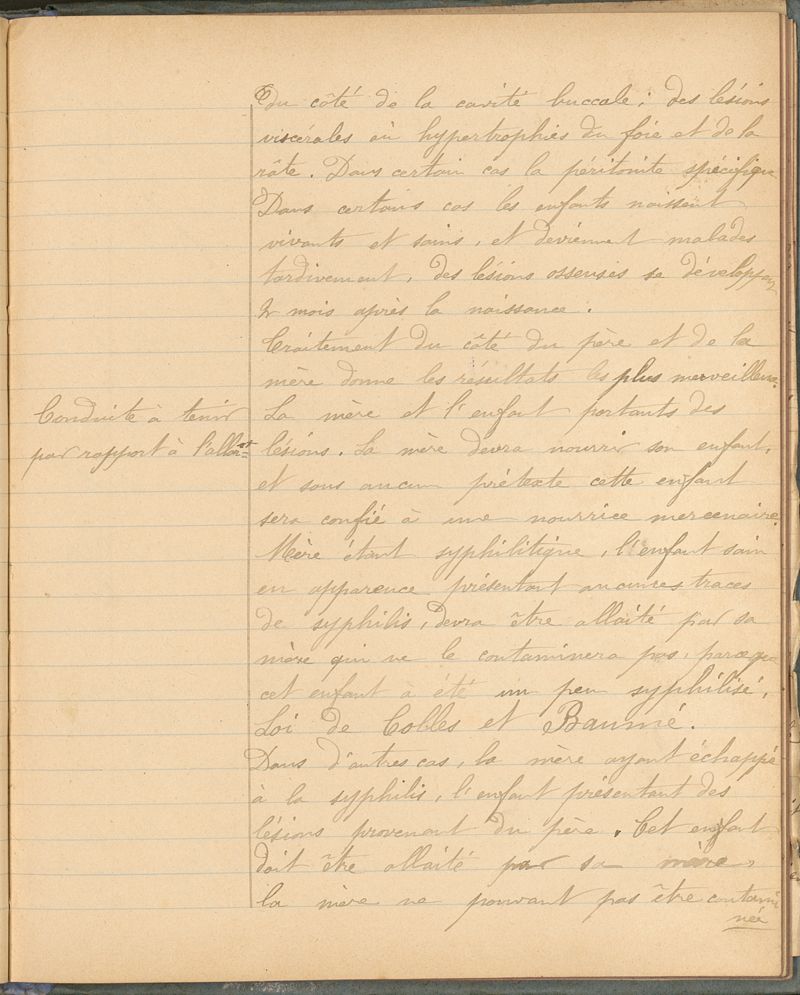 du côté de la cavité buccale ; des lésions
viscérales ou hypertrophies du foie et de la
râte. Dans certain cas la péritonite spécifique
Dans certains cas les enfants naissent
vivants et sains, et deviennent malades
tardivement, des lésions osseuses se développant
2 mois après la naissance.
Traitement du côté du père et de la
mère donne les résultats les plus merveilleux.
Conduite à tenir
par rapport à l'allait
La mère et l'enfant portants des
lésions. La mère devra nourrir son enfant,
et sous aucun prétexte cette enfant
sera confié à une nourrice mercenaire.
Mère étant syphilitique, l'enfant sain
en apparence présentant aucunes traces
de syphilis, devra être allaité par sa
mère qui ne le contaminera pas, parceque
cet enfant à été un peu syphilisé,
Loi de Colles et Baumé.
Dans d'autres cas, la mère ayant échappé
à la syphilis, l'enfant présentant des
lésions provenant du père. Cet enfant
doit être allaité par sa mère,
la mère ne pouvant pas être contami
née